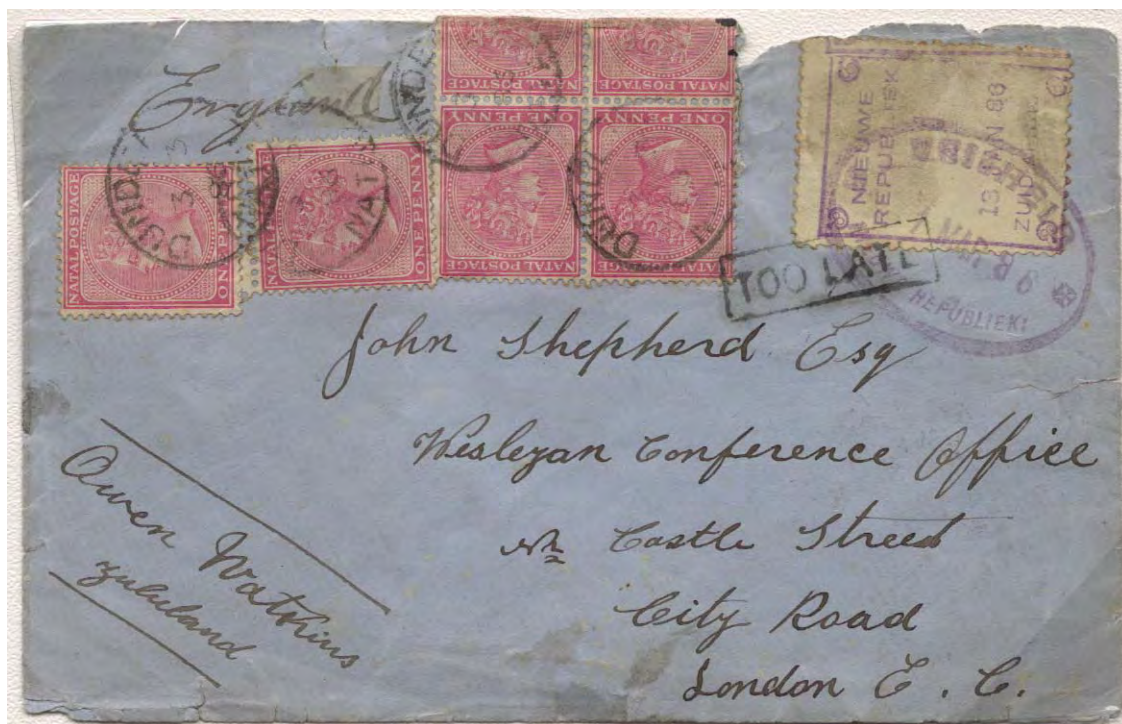 England
NATAL POSTAGE
ONE PENNY
NATAL POSTAGE
ONE PENNY
NATAL POSTAGE
ONE PENNY
NATAL POSTAGE
ONE PENNY
NATAL POSTAGE
NATAL POSTAGE
DUNDEE
NATAL
NIEUWE
REPUBLIEK
13 JAN 86
ZUID
VRIJHEID
REPUBLIEK
TOO LATE
John Shepherd Esq
Wesleyan Conference Office
Castle Street
City Road
London E. C.
Owen Watkins
Zululand